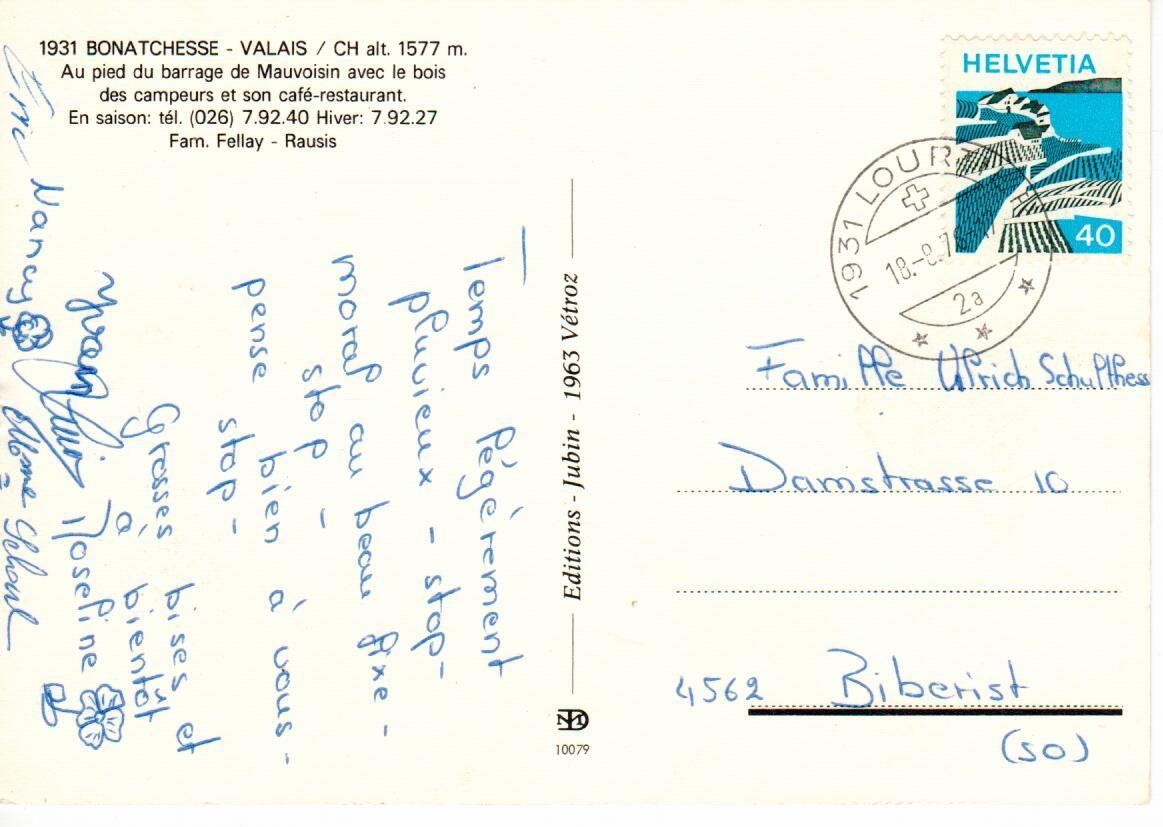 1931 BONATCHESSE - VALAIS / CH alt. 1577 m.
Au pied du barrage de Mauvoisin avec le bois
des campeurs et son café-restaurant.
En saison: tél. (026) 7.92.40 Hiver: 7.92.27
Fam. Fellay - Rausis
Temps légèrement
pluvieux - stop -
moral au beau fixe -
stop -
pense bien à vous -
stop -
Grosses bises et
à bientôt
Joseline
Eric Nancy
Editions - Jubin - 1963 Vétroz
10079
HELVETIA
40
1931 LOURT
18.-8.7
2a
Famille Ulrich Schulthess
Damstrasse 10
4562 Biberist
(SO)